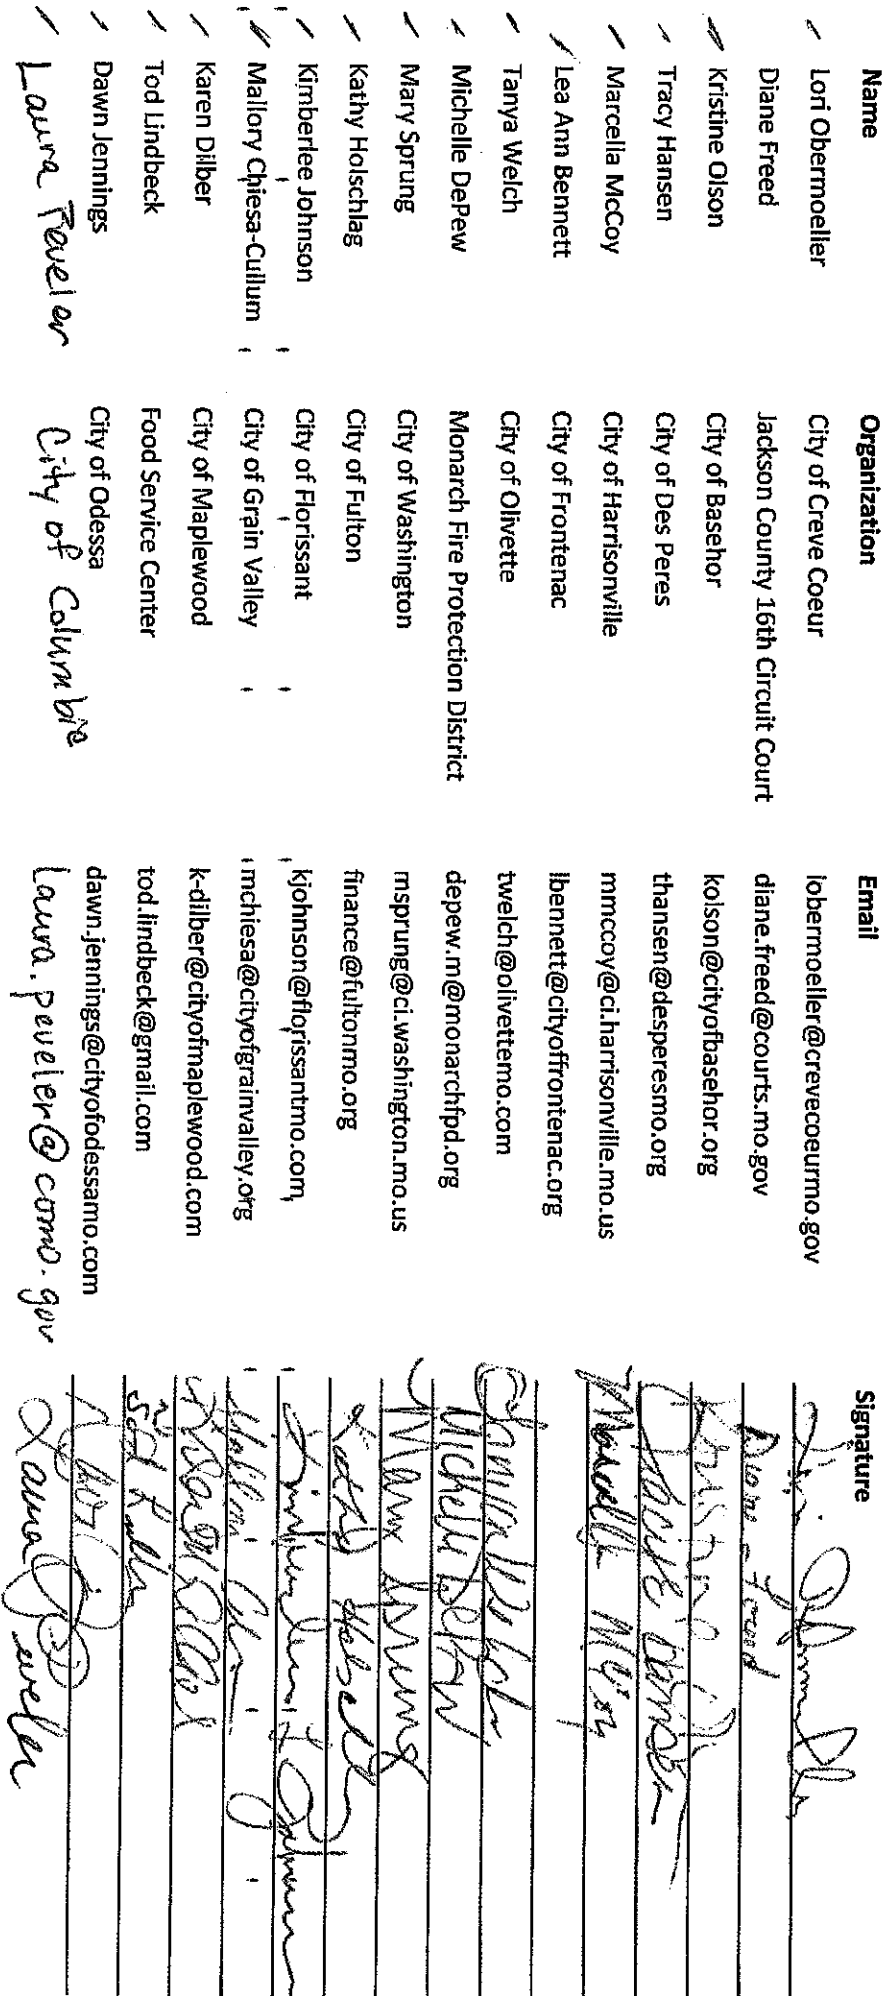 Name Organization Email Signature
Lori Obermoeller City of Creve Coeur lobermoeller@crevecoeurmo.gov
Diane Freed Jackson County 16th Circuit Court diane.freed@courts.mo.gov Diane Freed
Kristine Olson City of Basehor kolson@cityofbasehor.org Kristine
Tracy Hansen City of Des Peres thansen@desperesmo.org Hansen
Marcella McCoy City of Harrisonville mmccoy@ci.harrisonville.mo.us Marcella McCoy
Lea Ann Bennett City of Frontenac lbennett@cityoffrontenac.org
Tanya Welch City of Olivette twelch@olivettemo.com Tanya Welch
Michelle DePew Monarch Fire Protection District depew.m@monarchfpd.org Michelle DePew
Mary Sprung City of Washington msprung@ci.washington.mo.us Mary Sprung
Kathy Holschlag City of Fulton finance@fultonmo.org Kathy
Kimberlee Johnson City of Florissant kjohnson@florissantmo.com Kimberlee Johnson
Mallory Chiesa-Cullum City of Grain Valley mchiesa@cityofgrainvalley.org
Karen Dilber City of Maplewood k-dilber@cityofmaplewood.com
Tod Lindbeck Food Service Center tod.lindbeck@gmail.com
Dawn Jennings City of Odessa dawn.jennings@cityofodessamo.com
Laura Peveler City of Columbia laura.peveler@como.gov Laura Peveler